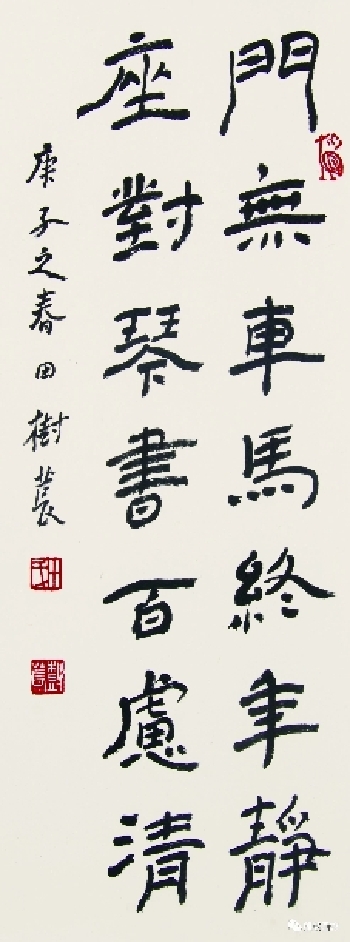 門無車馬終年靜
座對琴書百慮清
庚子之春田樹萇